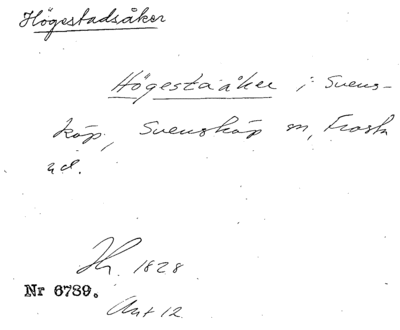 Högestadsåker
Högestaåker i Svens-
köp, Svensköp sn, Frosta
hd.
1828
Nr 6789.
Akt 12